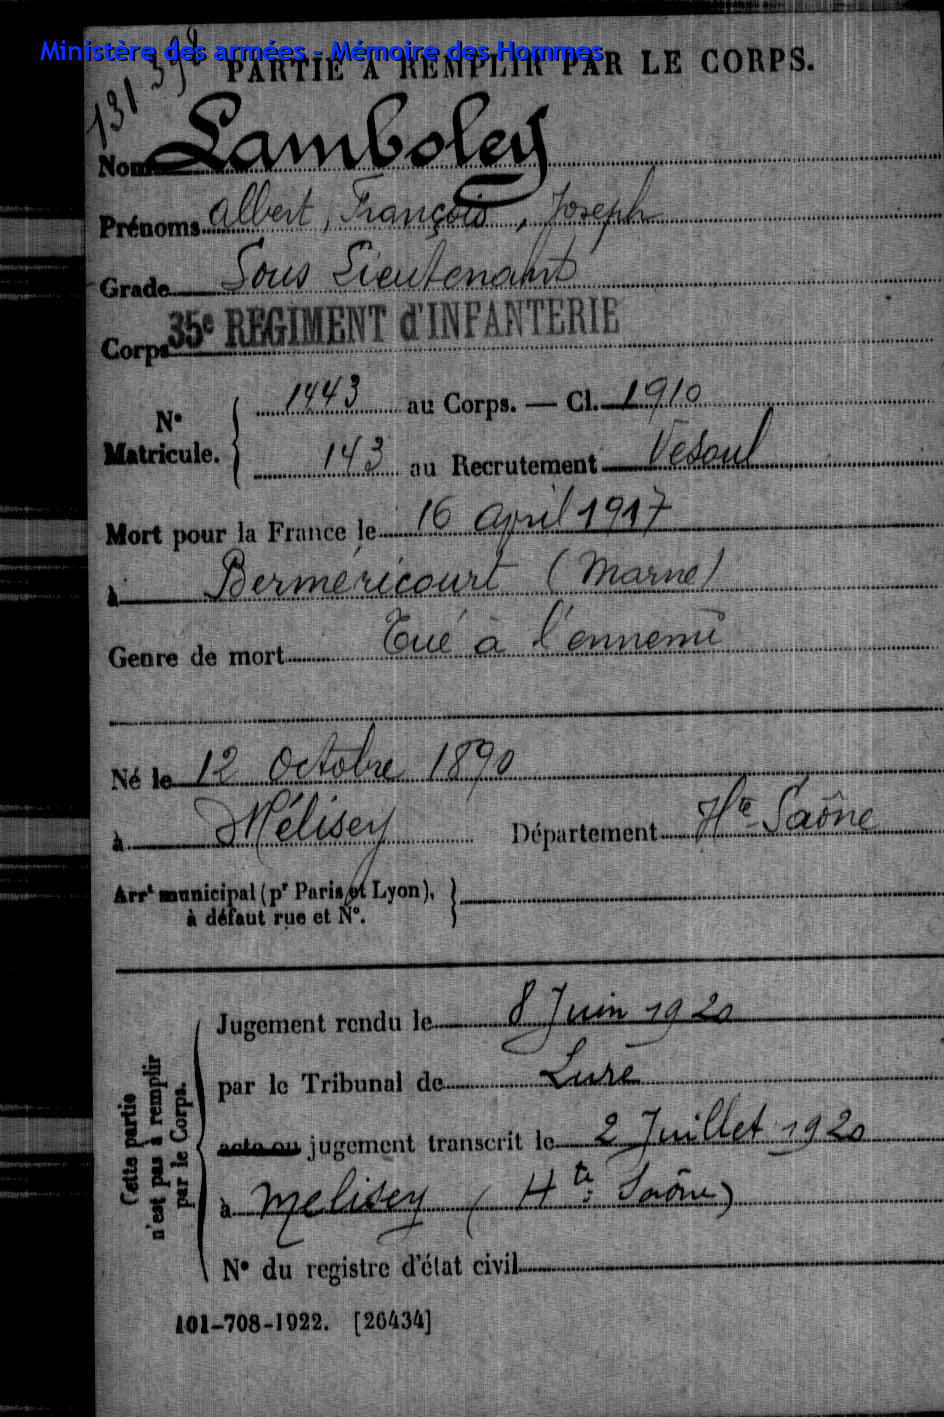 Ministère des armées - Mémoire des Hommes
131 392
PARTIE A REMPLIR PAR LE CORPS.
Nom Lamboley
Prénoms albert, François, Joseph
Grade Sous Lieutenant
Corps 35e REGIMENT d'INFANTERIE
N° Matricule. { 1443 au Corps. — Cl. 1910
143 au Recrutement Vesoul
Mort pour la France le 16 april 1917
à Berméricourt (Marne)
Genre de mort Tué à l'ennemi
Né le 12 Octobre 1890
à Mélisey Département Hte Saône
Arrt municipal (pr Paris et Lyon), }
à défaut rue et N°.
Cette partie n'est pas à remplir par le Corps.
Jugement rendu le 8 Juin 1920
par le Tribunal de Lure
acte ou jugement transcrit le 2 Juillet 1920
à Melisey (Hte Saône)
N° du registre d'état civil
101-708-1922. [26434]